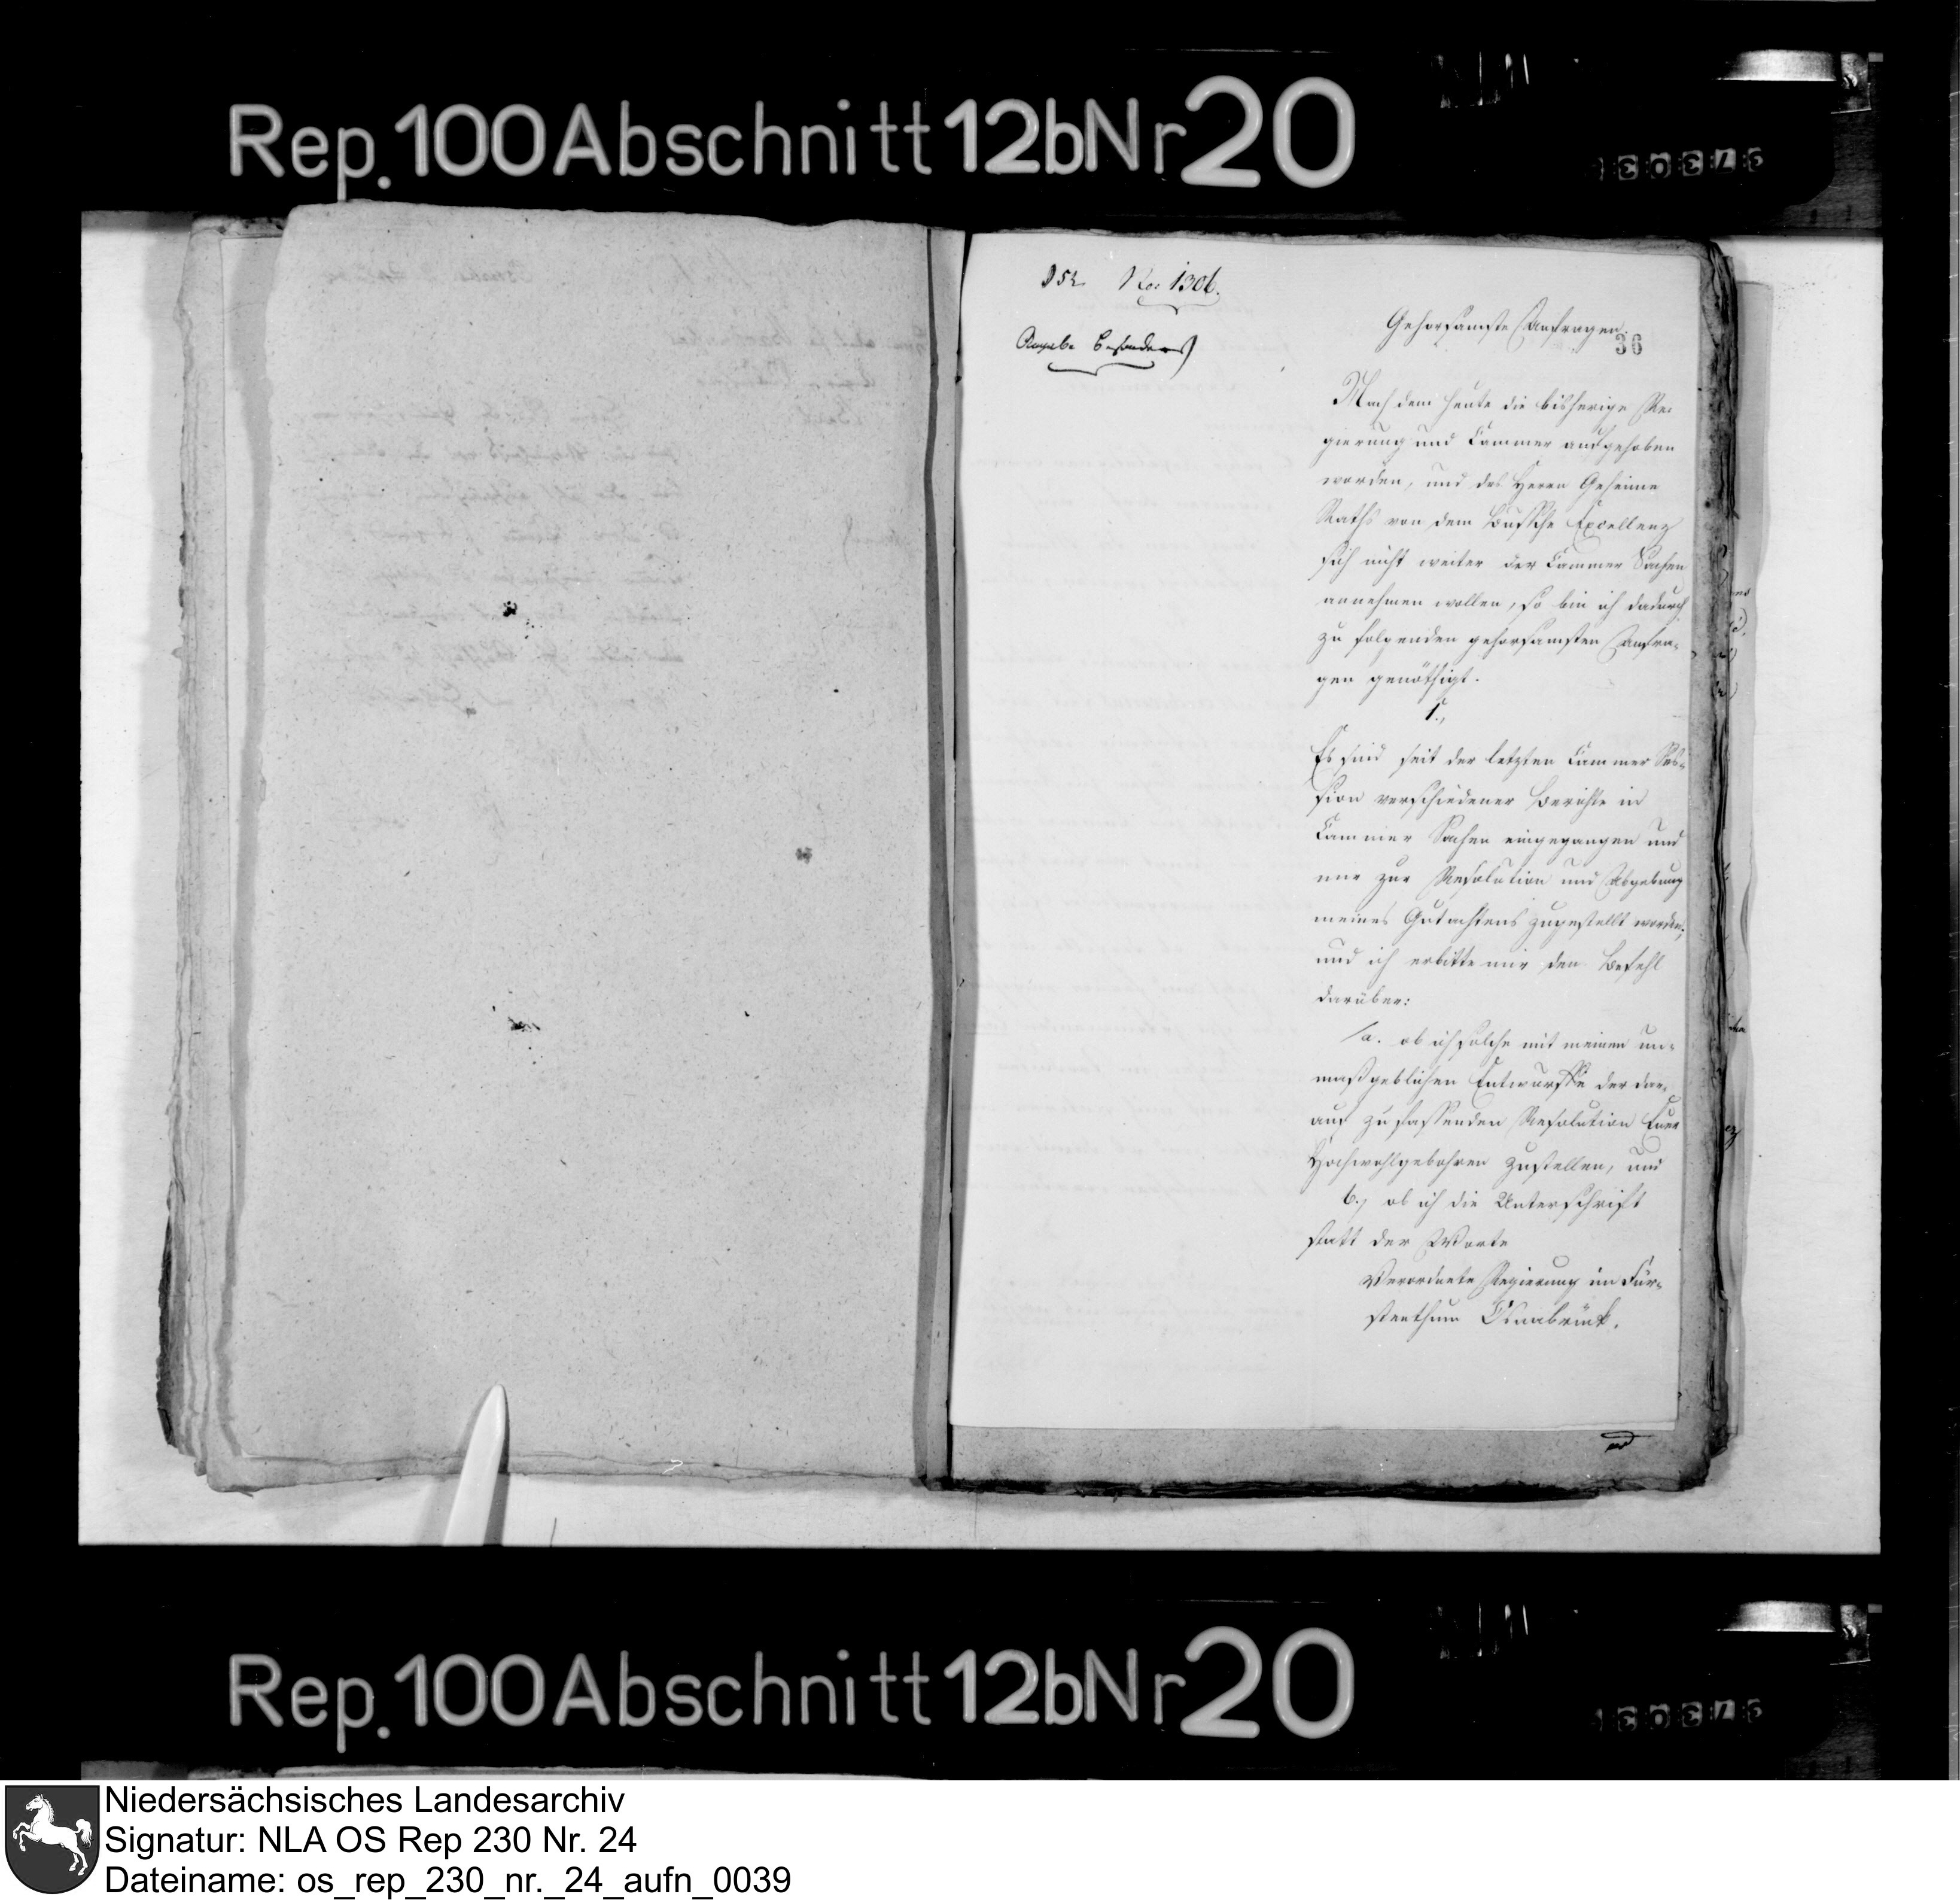 Rep. 100 Abschnitt 12b Nr 20
No: 1306.
Gehorsamste Anfragen.
36
Nach dem heute die bisherige Re-
gierung und Cammer aufgehoben
worden, und des Herrn Geheime
Raths von dem Bussche Excellenz
sich nicht weiter der Cammer Sachen
annehmen wollen, so bin ich dadurch
zu folgenden gehorsamsten Anfra-
gen genöthigt.
1.,
Es sind seit der letzten Cammer Ses-
sion verschiedener Berichte in
Cammer Sachen eingegangen und
mir zur Resolution und Abgebung
meines Gutachtens zugestellt worden;
und ich erbitte mir den Befehl
darüber:
a. ob ich solche mit meinem un-
maßgeblichen Entwurffe der dar-
auf zu fassenden Resolution Euer
Hochwohlgebohren zustellen, und
b., ob ich die Unterschrift
statt der Worte
Verordnete Regierung im Für-
stenthum Osnabrück.
Rep. 100 Abschnitt 12b Nr 20
Niedersächsisches Landesarchiv
Signatur: NLA OS Rep 230 Nr. 24
Dateiname: os_rep_230_nr._24_aufn_0039